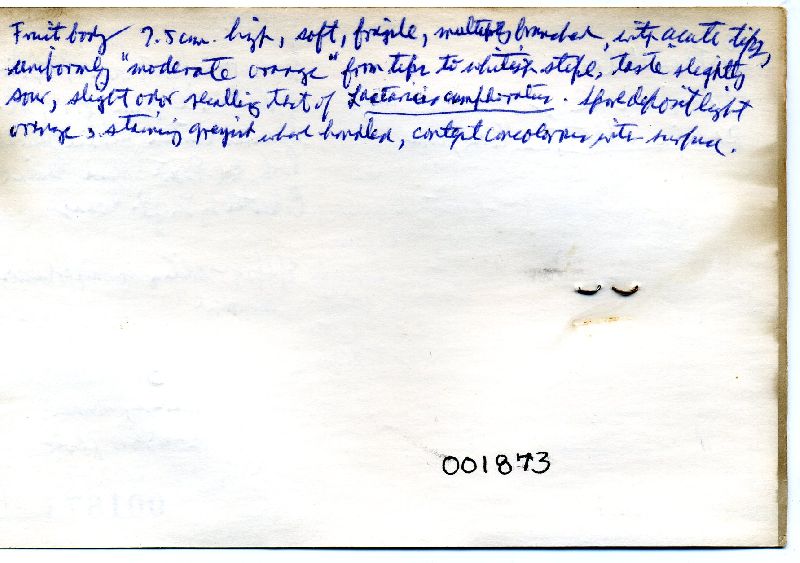 Fruit body 7.5 cm. high, soft, fragile, multiply branched, with acute tips,
uniformly "moderate orange" from tips to whitish stipe, taste slightly
sour, slight odor recalling that of Lactarius camphoratus. Spore deposit light
orange, staining greyish where handled, context concolorous with surface.
001873